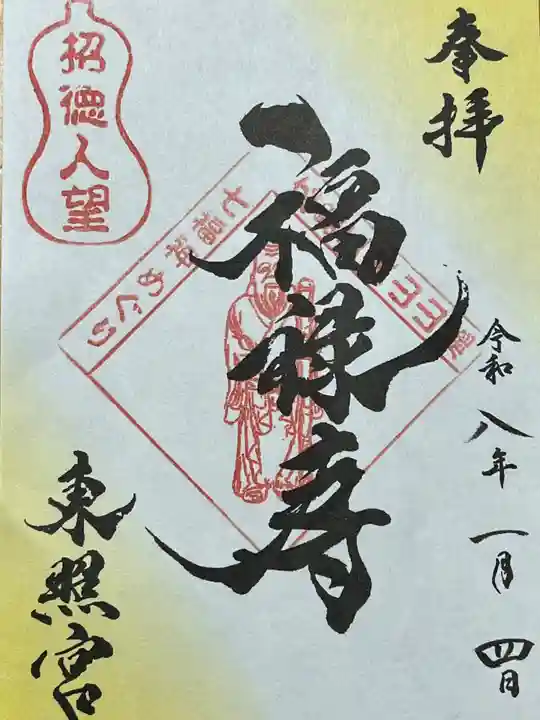 奉拝
令和八年一月四日
福禄寿
招徳人望
七福神めぐり
東照宮